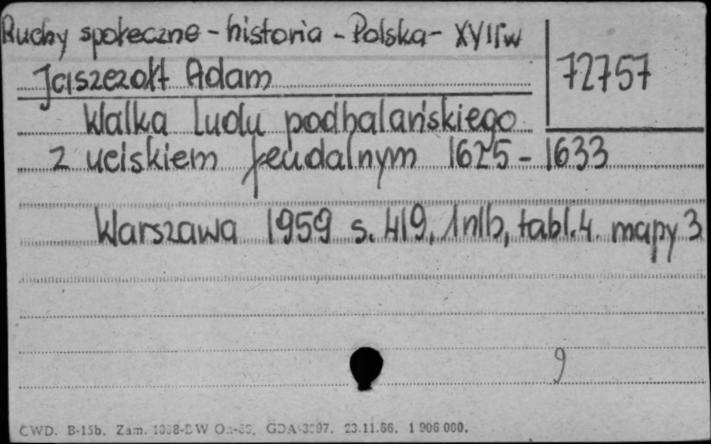 Ruchy społeczne - historia - Polska - XVII w
72757
Jaszczołt Adam
Walka ludu podhalańskiego
z uciskiem feudalnym 1625-1633
Warszawa 1959 s. 419, 1 nlb, tabl. 4. mapy 3
9
CWD. B-15b. Zam. 23.11.66. 1 906 000.